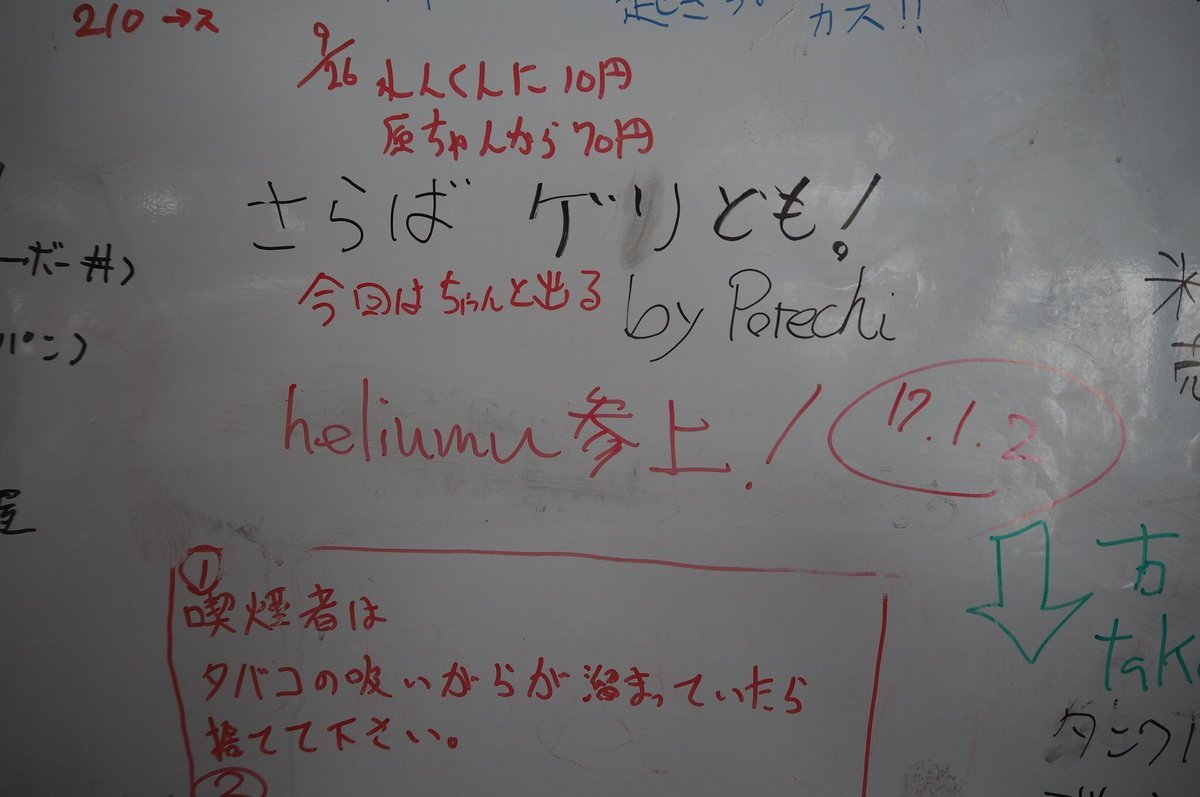 210→ス
カス!!
9/26 れんくんに10円
原ちゃんから70円
さらば ゲリとも!
今回はちゃんと出る
by Potechi
heliumu 参上!
17.1.2
①
喫煙者は
タバコの吸いがらが溜まっていたら
捨てて下さい。
②